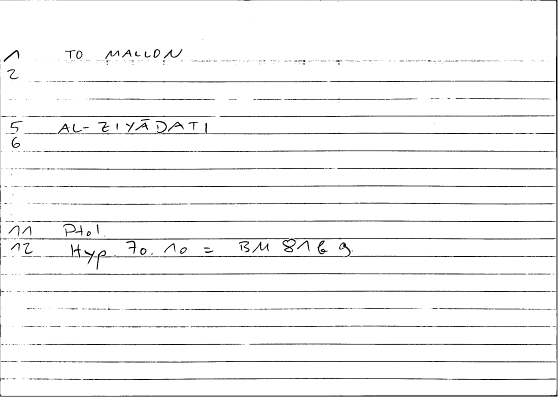 1 TO MALLON
2
5 AL-ZIYĀDATI
6
11 Ptol.
12 Hyp 70.10 = BM 81b 9